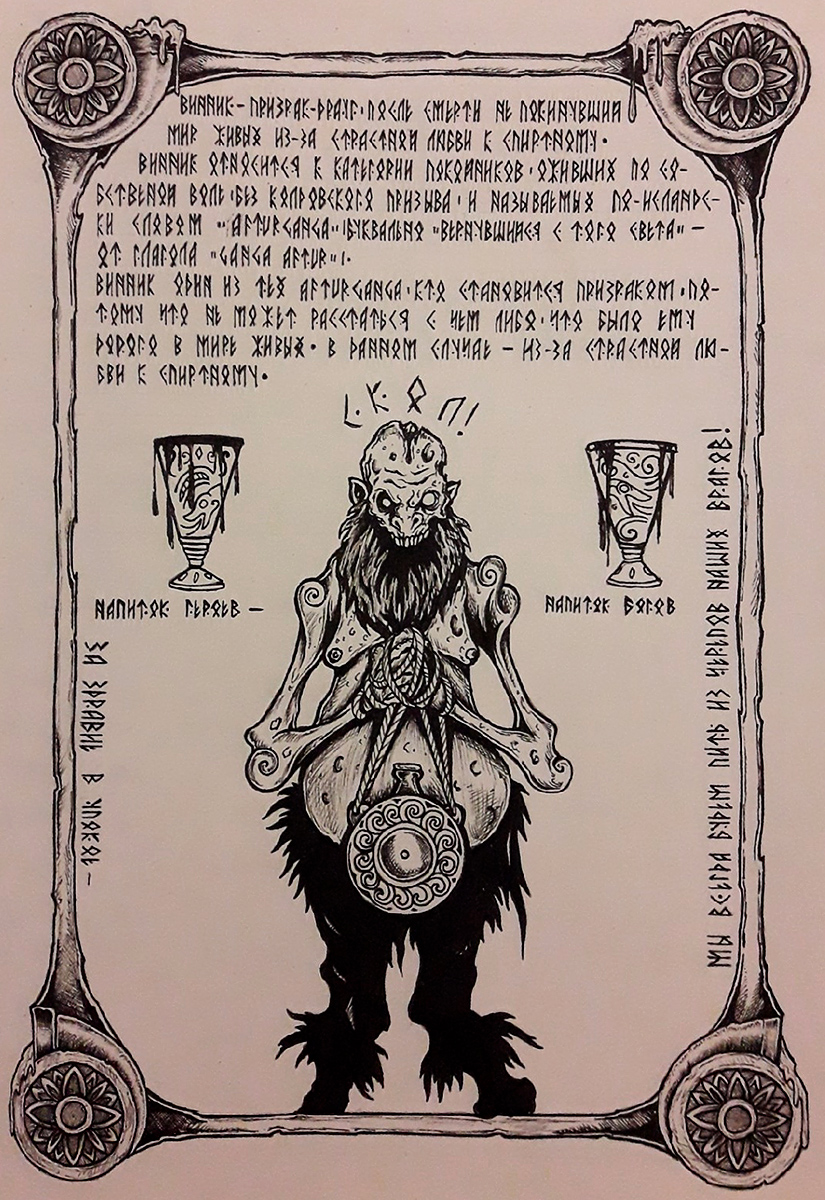 ВИННИК – ПРИЗРАК-ДРАУГ · ПОСЛЕ СМЕРТИ НЕ ПОКИНУВШИЙ
МИР ЖИВЫХ ИЗ-ЗА СТРАСТНОЙ ЛЮБВИ К СПИРТНОМУ ·
ВИННИК ОТНОСИТСЯ К КАТЕГОРИИ ПОКОЙНИКОВ · ОЖИВШИХ ПО СО-
БСТВЕНОЙ ВОЛЕ · БЕЗ КОЛДОВСКОГО ПРИЗЫВА · И НАЗЫВАЕМЫХ ПО-ИСЛАНДС-
КИ СЛОВОМ "AFTURGANGA" (БУКВАЛЬНО "ВЕРНУВШИЙСЯ С ТОГО СВЕТА" –
ОТ ГЛАГОЛА "GANGA AFTUR") ·
ВИННИК ОДИН ИЗ ТЕХ AFTURGANGA · КТО СТАНОВИТСЯ ПРИЗРАКОМ · ПО-
ТОМУ ЧТО НЕ МОЖЕТ РАССТАТЬСЯ С ЧЕМ ЛИБО · ЧТО БЫЛО ЕМУ
ДОРОГО В МИРЕ ЖИВЫХ · В ДАННОМ СЛУЧАЕ – ИЗ-ЗА СТРАСТНОЙ ЛЮ-
БВИ К СПИРТНОМУ ·
НАПИТОК ГЕРОЕВ –
НАПИТОК БОГОВ
ЗА ЗДРАВИЕ В УПОКОЕ –
МЫ ВСЕГДА БУДЕМ ПИТЬ ИЗ ЧЕРЕПОВ НАШИХ ВРАГОВ!